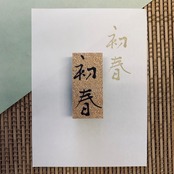 初春
初春